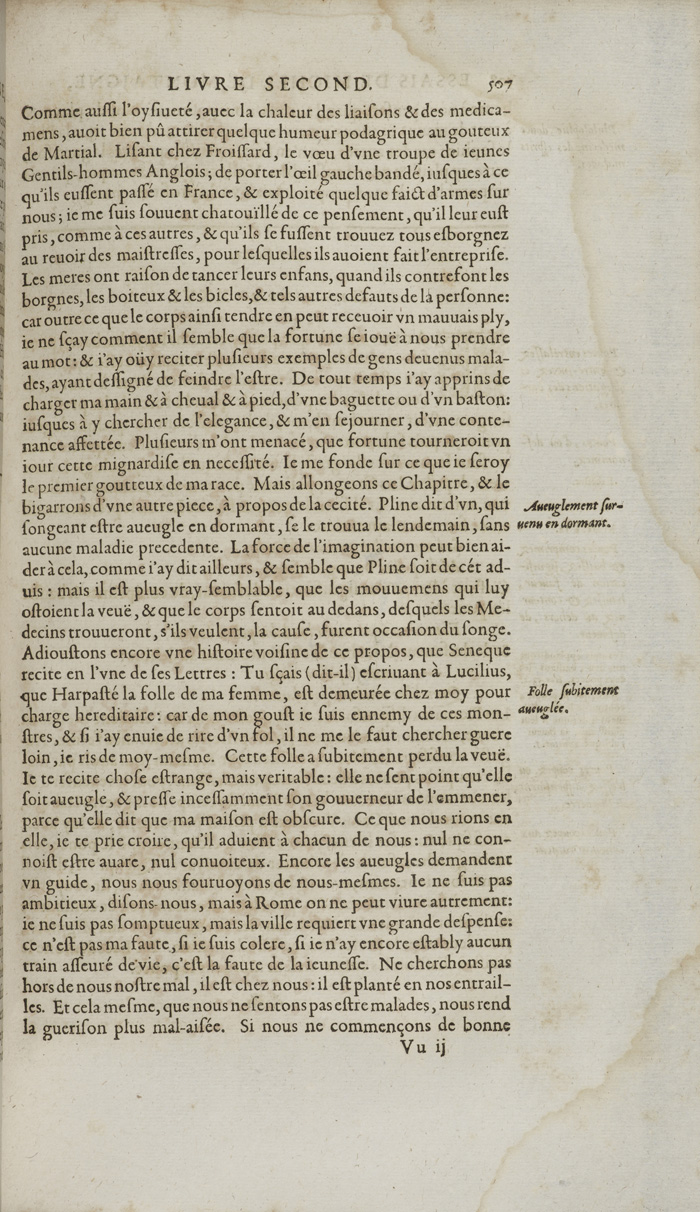 LIVRE SECOND. 507
Comme auſſi l'oyſiueté, auec la chaleur des liaiſons & des medica-
mens, auoit bien pû attirer quelque humeur podagrique au gouteux
de Martial. Liſant chez Froiſſard, le vœu d'vne troupe de ieunes
Gentils-hommes Anglois; de porter l'œil gauche bandé, iuſques à ce
qu'ils euſſent paſſé en France, & exploité quelque faict d'armes ſur
nous; ie me ſuis ſouuent chatoüillé de ce penſement, qu'il leur euſt
pris, comme à ces autres, & qu'ils ſe fuſſent trouuez tous eſborgnez
au reuoir des maiſtreſſes, pour leſquelles ils auoient fait l'entrepriſe.
Les meres ont raiſon de tancer leurs enfans, quand ils contrefont les
borgnes, les boiteux & les bicles, & tels autres defauts de la perſonne:
car outre ce que le corps ainſi tendre en peut receuoir vn mauuais ply,
ie ne ſçay comment il ſemble que la fortune ſe ioüe à nous prendre
au mot: & i'ay oüy reciter pluſieurs exemples de gens deuenus mala-
des, ayant deſſigné de feindre l'eſtre. De tout temps i'ay apprins de
charger ma main & à cheual & à pied, d'vne baguette ou d'vn baſton:
iuſques à y chercher de l'elegance, & m'en ſejourner, d'vne conte-
nance affettée. Pluſieurs m'ont menacé, que fortune tourneroit vn
iour cette mignardiſe en neceſſité. Ie me fonde ſur ce que ie ſeroy
le premier goutteux de ma race. Mais allongeons ce Chapitre, & le
bigarrons d'vne autre piece, à propos de la cecité. Pline dit d'vn, qui
ſongeant eſtre aueugle en dormant, ſe le trouua le lendemain, ſans
aucune maladie precedente. La force de l'imagination peut bien ai-
der à cela, comme i'ay dit ailleurs, & ſemble que Pline ſoit de cét ad-
uis: mais il eſt plus vray-ſemblable, que les mouuemens qui luy
oſtoient la veuë, & que le corps ſentoit au dedans, deſquels les Me-
decins trouueront, s'ils veulent, la cauſe, furent occaſion du ſonge.
Adiouſtons encore vne hiſtoire voiſine de ce propos, que Seneque
recite en l'vne de ſes Lettres: Tu ſçais (dit-il) eſcriuant à Lucilius,
que Harpaſté la folle de ma femme, eſt demeurée chez moy pour
charge hereditaire: car de mon gouſt ie ſuis ennemy de ces mon-
ſtres, & ſi i'ay enuie de rire d'vn fol, il ne me le faut chercher guere
loin, ie ris de moy-meſme. Cette folle a ſubitement perdu la veuë.
Ie te recite choſe eſtrange, mais veritable: elle ne ſent point qu'elle
ſoit aueugle, & preſſe inceſſamment ſon gouuerneur de l'emmener,
parce qu'elle dit que ma maiſon eſt obſcure. Ce que nous rions en
elle, ie te prie croire, qu'il aduient à chacun de nous: nul ne con-
noiſt eſtre auare, nul conuoiteux. Encore les aueugles demandent
vn guide, nous nous fouruoyons de nous-meſmes. Ie ne ſuis pas
ambitieux, diſons-nous, mais à Rome on ne peut viure autrement:
ie ne ſuis pas ſomptueux, mais la ville requiert vne grande deſpenſe:
ce n'eſt pas ma faute, ſi ie ſuis colere, ſi ie n'ay encore eſtably aucun
train aſſeuré de vie, c'eſt la faute de la ieuneſſe. Ne cherchons pas
hors de nous noſtre mal, il eſt chez nous: il eſt planté en nos entrail-
les. Et cela meſme, que nous ne ſentons pas eſtre malades, nous rend
la gueriſon plus mal-aiſée. Si nous ne commençons de bonne
Vu ij
Aueuglement ſur-
uenu en dormant.
Folle ſubitement
aueuglée.